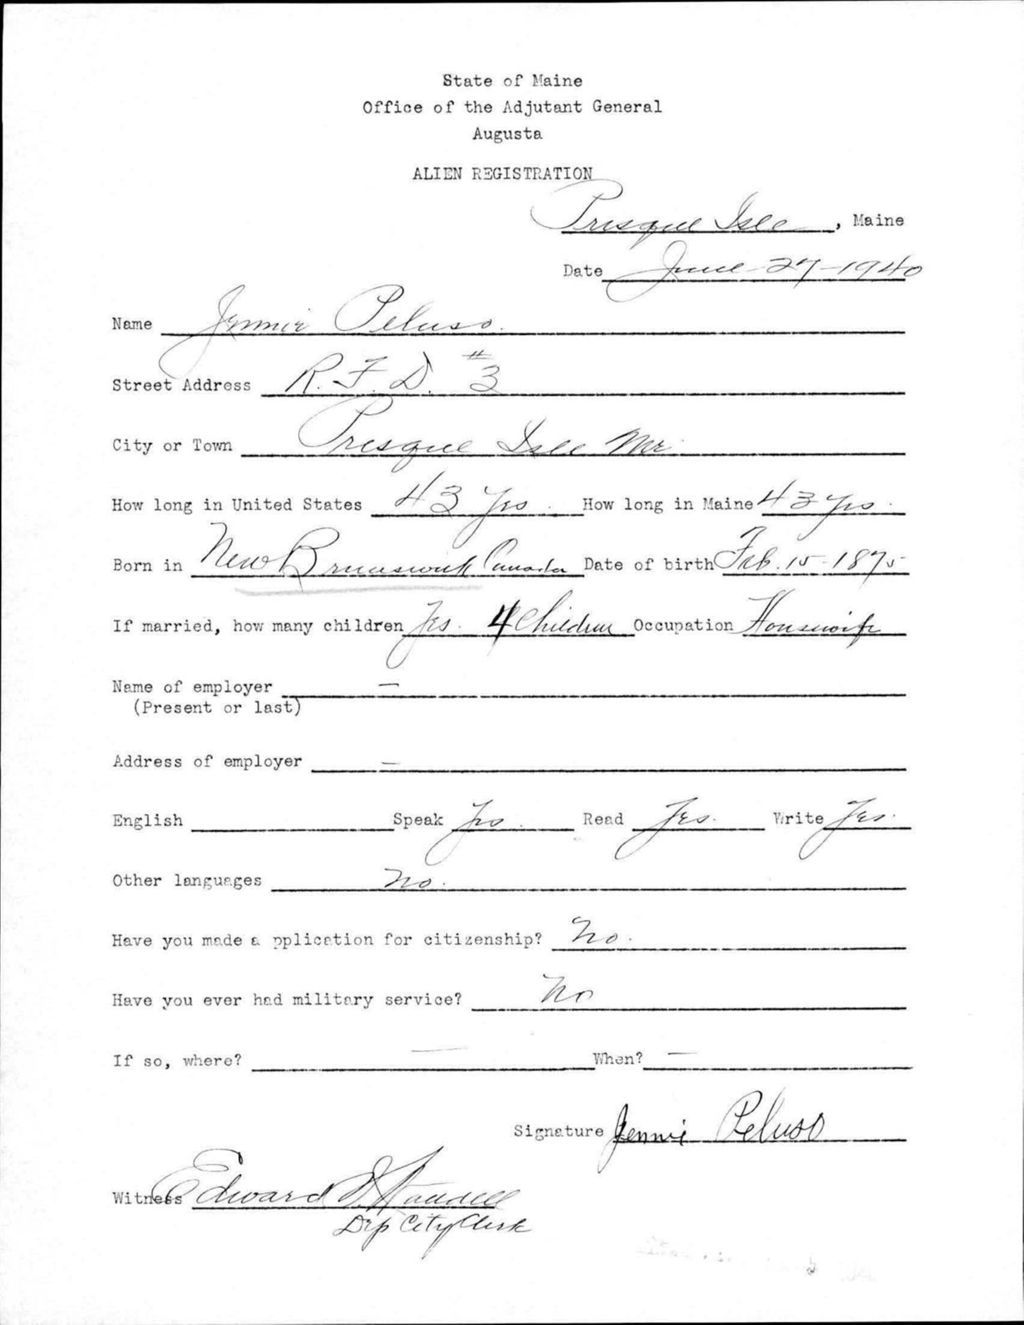 State of Maine
Office of the Adjutant General
Augusta
ALIEN REGISTRATION
Presque Isle, Maine
Date June-27-1940
Name Jennie Peluso.
Street Address R.F.D. #3
City or Town Presque Isle Me.
How long in United States 43 Yrs. How long in Maine 43 Yrs.
Born in New Brunswick Canada Date of birth Feb. 15-1875
If married, how many children Yes. 4 Children Occupation Housewife
Name of employer –
(Present or last)
Address of employer –
English Speak Yes. Read Yes. Write Yes.
Other languages No.
Have you made a pplication for citizenship? No.
Have you ever had military service? No
If so, where? — When? —
Signature Jennie Peluso
Witness Edward
Dep City Clerk